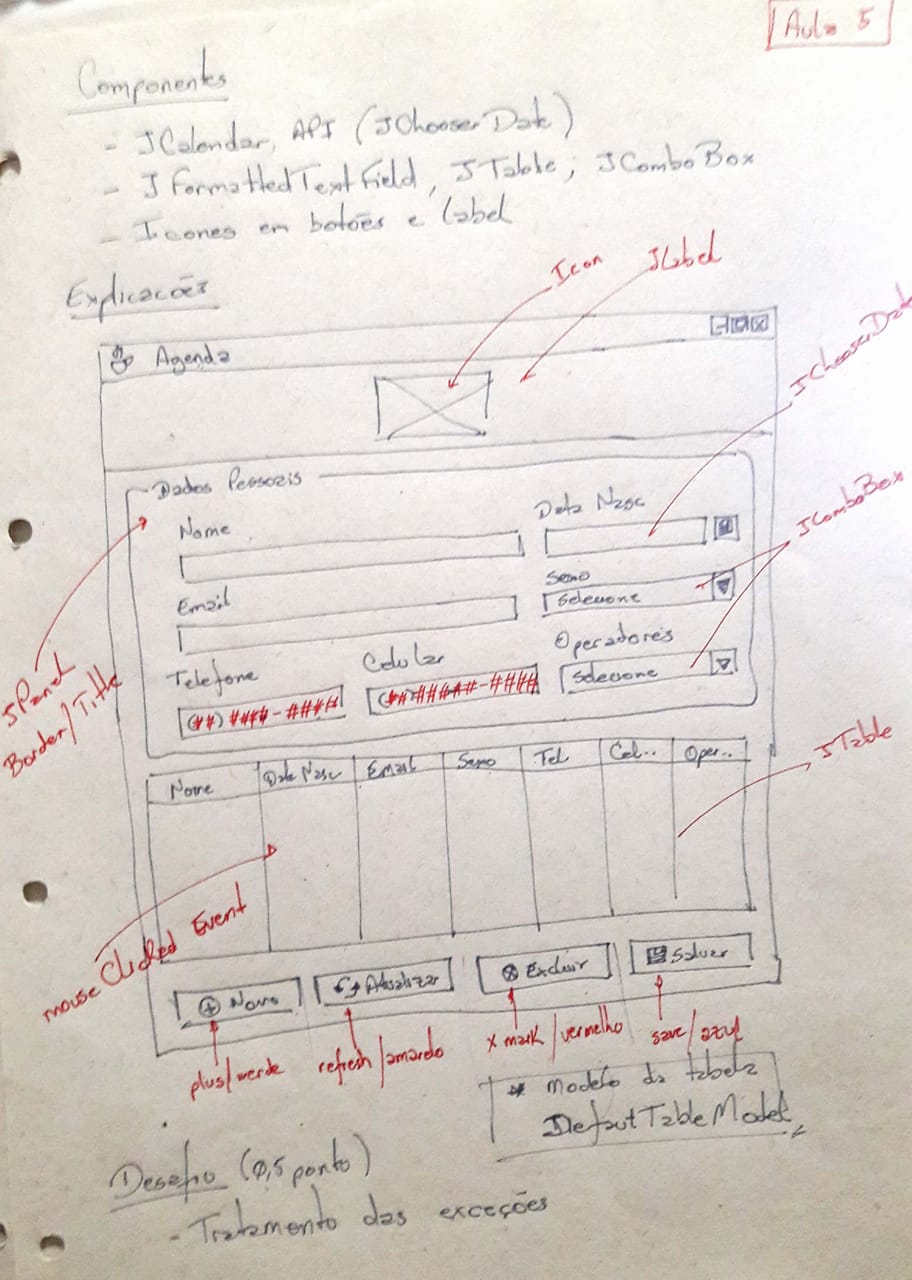 Aula 5
Componentes
- JCalendar, API (JChooserDate)
- JFormattedTextField, JTable; JComboBox
- Icones em botões e label
Explicações
Icon
JLabel
Agenda
JChooserDate
Dados Pessoais
Nome
Data Nasc
JComboBox
Email
Sexo
Selecione
Telefone
Celular
Operadores
(##)####-####
(##)#####-####
Selecione
JPanel
Border/Title
JTable
Nome
Data Nasc
Email
Sexo
Tel
Cel..
Oper..
mouse Clicked Event
Novo
Atualizar
Excluir
Salvar
plus/verde
refresh/amarelo
x mark/vermelho
save/azul
* modelo da tabela
DefautTableModel
Desafio (0,5 ponto)
- Tratamento das exceções